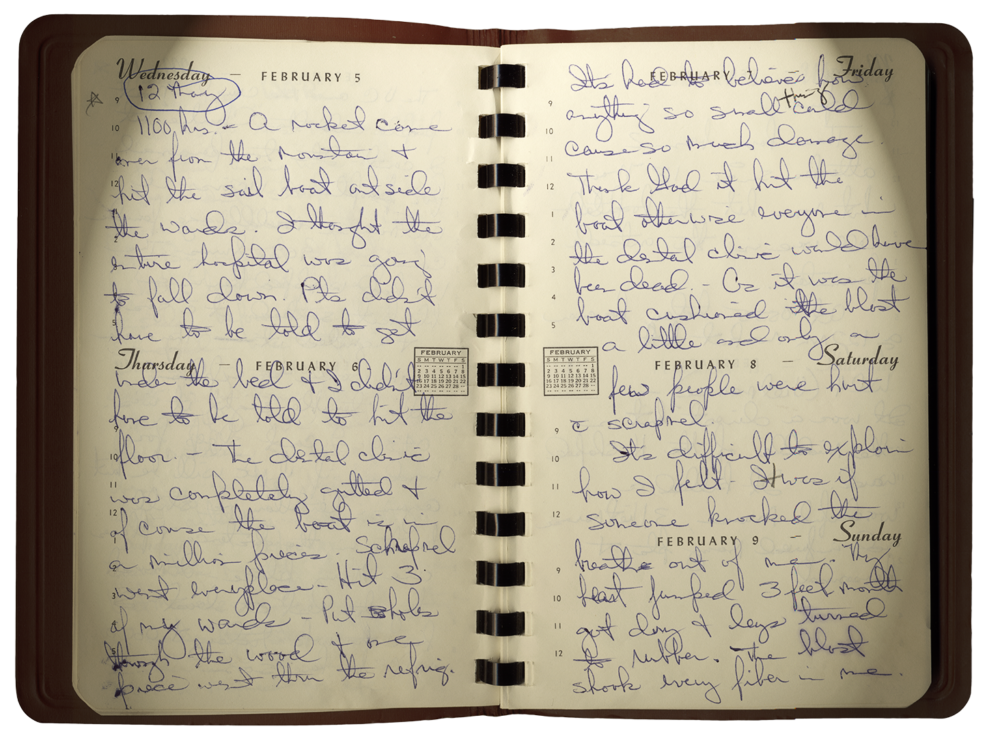 Wednesday — FEBRUARY 5
12 May
9
10 1100 hrs. - A rocket came
11 over from the mountain &
12 hit the sail boat outside
1 the wards. I thought the
2 entire hospital was going
to fall down. Pts didn't
5 have to be told to get
Thursday — FEBRUARY 6
FEBRUARY
S M T W T F S
1
2 3 4 5 6 7 8
9 10 11 12 13 14 15
16 17 18 19 20 21 22
23 24 25 26 27 28
under the bed & I didn't
have to be told to hit the
9
10 floor. - The dental clinic
11 was completely gutted &
12 of course the boat is in
a million pieces. Schrapnel
went everyplace - Hit 3
of my wards - Put holes
through the wood & one
piece went thru the refrig.
FEBRUARY 7 — Friday
Its hard to believe how
9 anything so small thing could
10
11 cause so much damage.
12 Thank God it hit the
1 boat otherwise everyone in
2 the dental clinic would have
3 been dead. - As it was the
4 boat cushioned the blast
5 a little and only a
FEBRUARY
S M T W T F S
1
2 3 4 5 6 7 8
9 10 11 12 13 14 15
16 17 18 19 20 21 22
23 24 25 26 27 28
FEBRUARY 8 — Saturday
few people were hurt
9 c scrapnel.
10 Its difficult to explain
11 how I felt - It was if
12 someone knocked the
FEBRUARY 9 — Sunday
breathe out of me. My
9 heart jumped 3 feet mouth
10
11 got dry & legs turned
12 to rubber. The blast
shook every fiber in me.